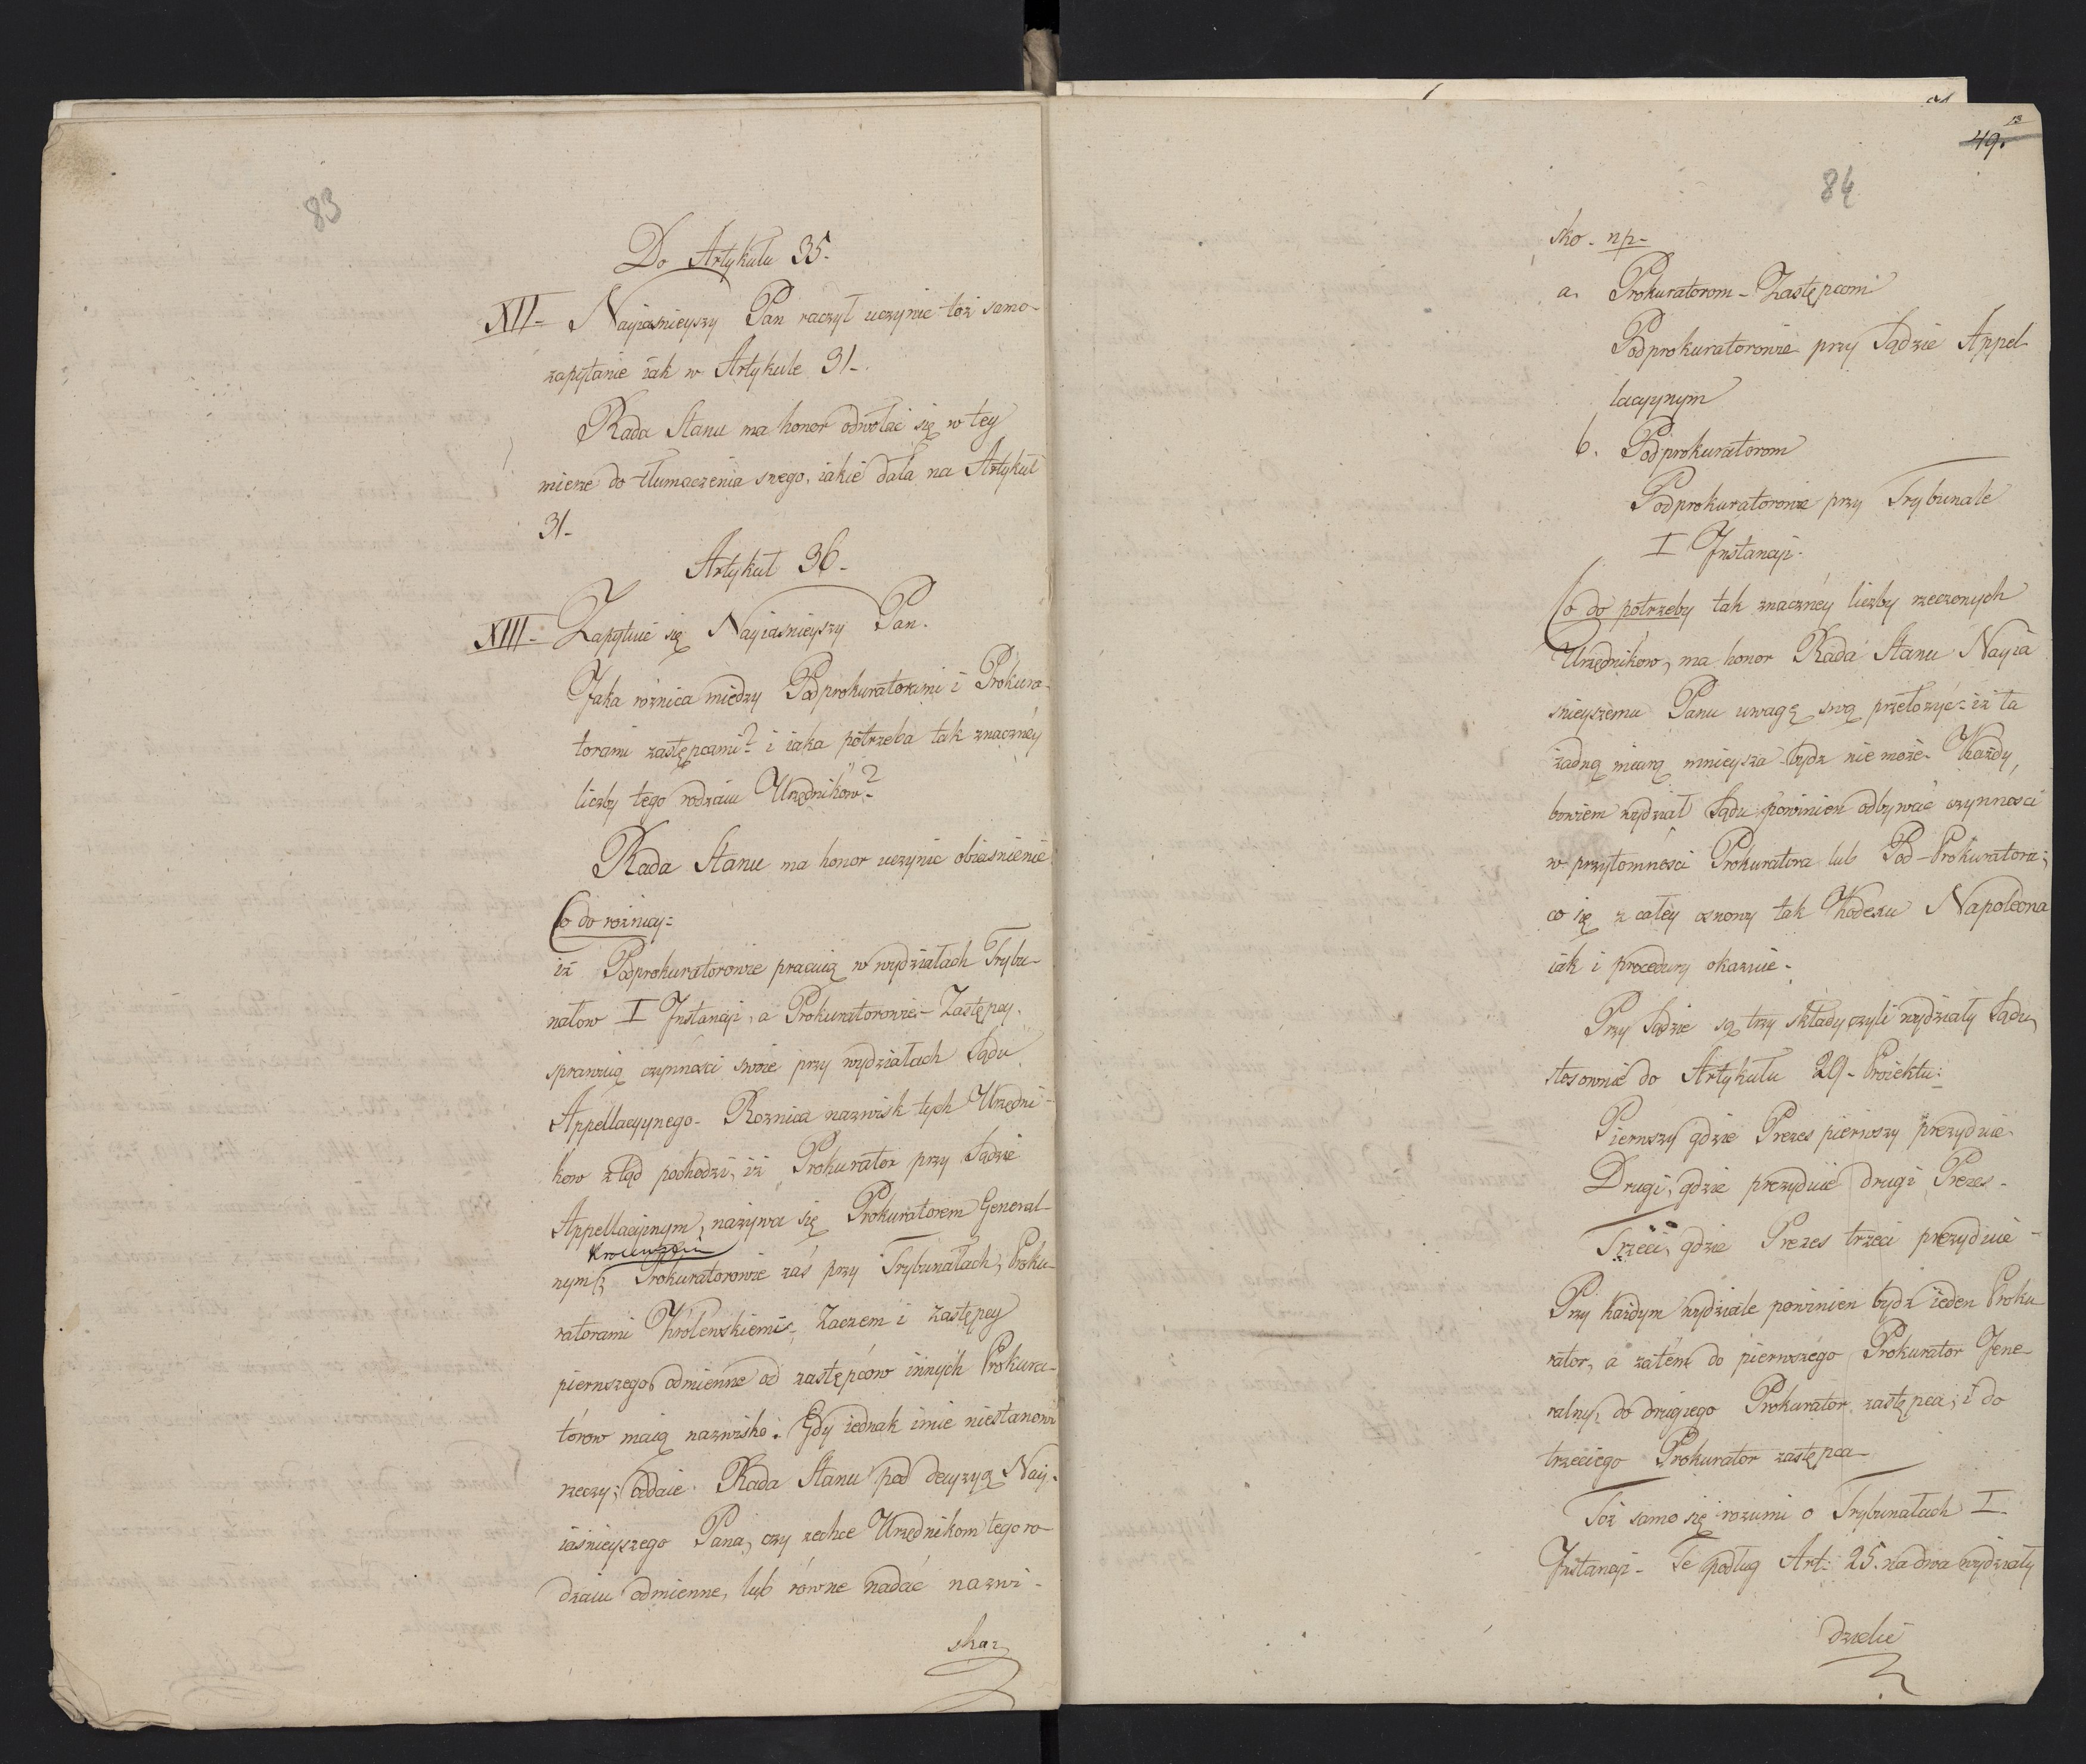 83
Do Artykułu 35.
XII - Nayiasnieyszy Pan raczył uczynic toż samo
zapytanie iak w Artykule 31-
Rada Stanu ma honor odwołać się w tey
mierze do tłumaczenia swego, iakie dała na Artykuł
31-
Artykuł 36-
XIII - Zapytuie się Nayiasnieyszy Pan.
Jaka rożnica między Podprokuratorami i Prokura-
torami zastępcami? i iaka potrzeba tak znaczney
liczby tego rodzaiu Urzędnikow?
Rada Stanu ma honor uczynic obiasnienie
Co do rożnicy:
iż Podprokuratorowie pracuią w wydziałach Trybu-
nałow I Instancji, a Prokuratorowie - Zastępcy
sprawuią czynnosci swoie przy wydziałach Sądu
Appellacyynego - Rożnica nazwisk tych Urzędni-
kow ztąd pochodzi, iż Prokurator przy Sądzie
Appellacyinym, nazywa się Prokuratorem General-
nym, Prokuratorowie zaś przy Trybunałach, Proku-
ratorami Królewskiemi; Zaczem i zastępcy
pierwszego odmienne od zastępców innych Prokura-
torow maią nazwisko. Gdy iednak imie niestanowi
rzeczy; oddaie Rada Stanu pod decyzyą Nay-
iaśnieyszego Pana, czy zechce Urzędnikom tego ro-
dzaiu odmienne, lub równe nadać nazwi-
ska
13
49.
84
sko - np-
a. Prokuratorom - Zastępcom
Podprokuratorowie przy Sądzie Appel
lacyynym
b. Podprokuratorom
Podprokuratorowie przy Trybunale
I Instancji.
Co do potrzeby tak znacznéy liczby rzeczonych
Urzędnikow, ma honor Rada Stanu Nayia
snieyszemu Panu uwagę swą przełożyć: iż ta
żadną miarą mnieysza bydz nie może. Każdy
bowiem wydział Sądu powinien odbywać czynnosci
w przytomnosci Prokuratora lub Pod-Prokuratora;
co się z całéy osnowy tak Kodexu Napoleona
iak i procedury okazuie.
Przy Sądzie są trzy składy czyli wydziały Sądu,
stosownie do Artykułu 29- Proiektu:
Pierwszy gdzie Prezes pierwszy prezyduie
Drugi, gdzie prezyduie drugi Prezes-
Trzeci, gdzie Prezes trzeci prezyduie -
Przy każdym wydziale powinien bydz ieden Proku-
rator, a zatem do pierwszégo Prokurator Jene-
ralny, do drugiego Prokurator zastępca, i do
trzeciego Prokurator zastępca-
Toż samo się rozumi o Trybunałach I-
Instancji- Te podług Art: 25. na dwa wydziały
dzielie